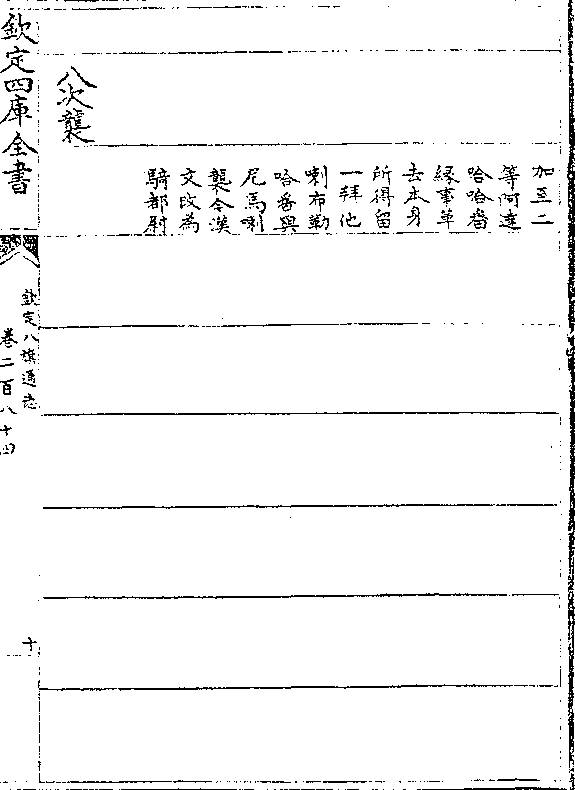 加至二
等阿達
哈哈番
縁事革
去本身
所得留
一拜他
喇布勒
哈番與
尼馬喇
襲今漢
文改為
騎都尉
八次襲
欽定四庫全書
欽定八旗通志
卷二百八十四
十